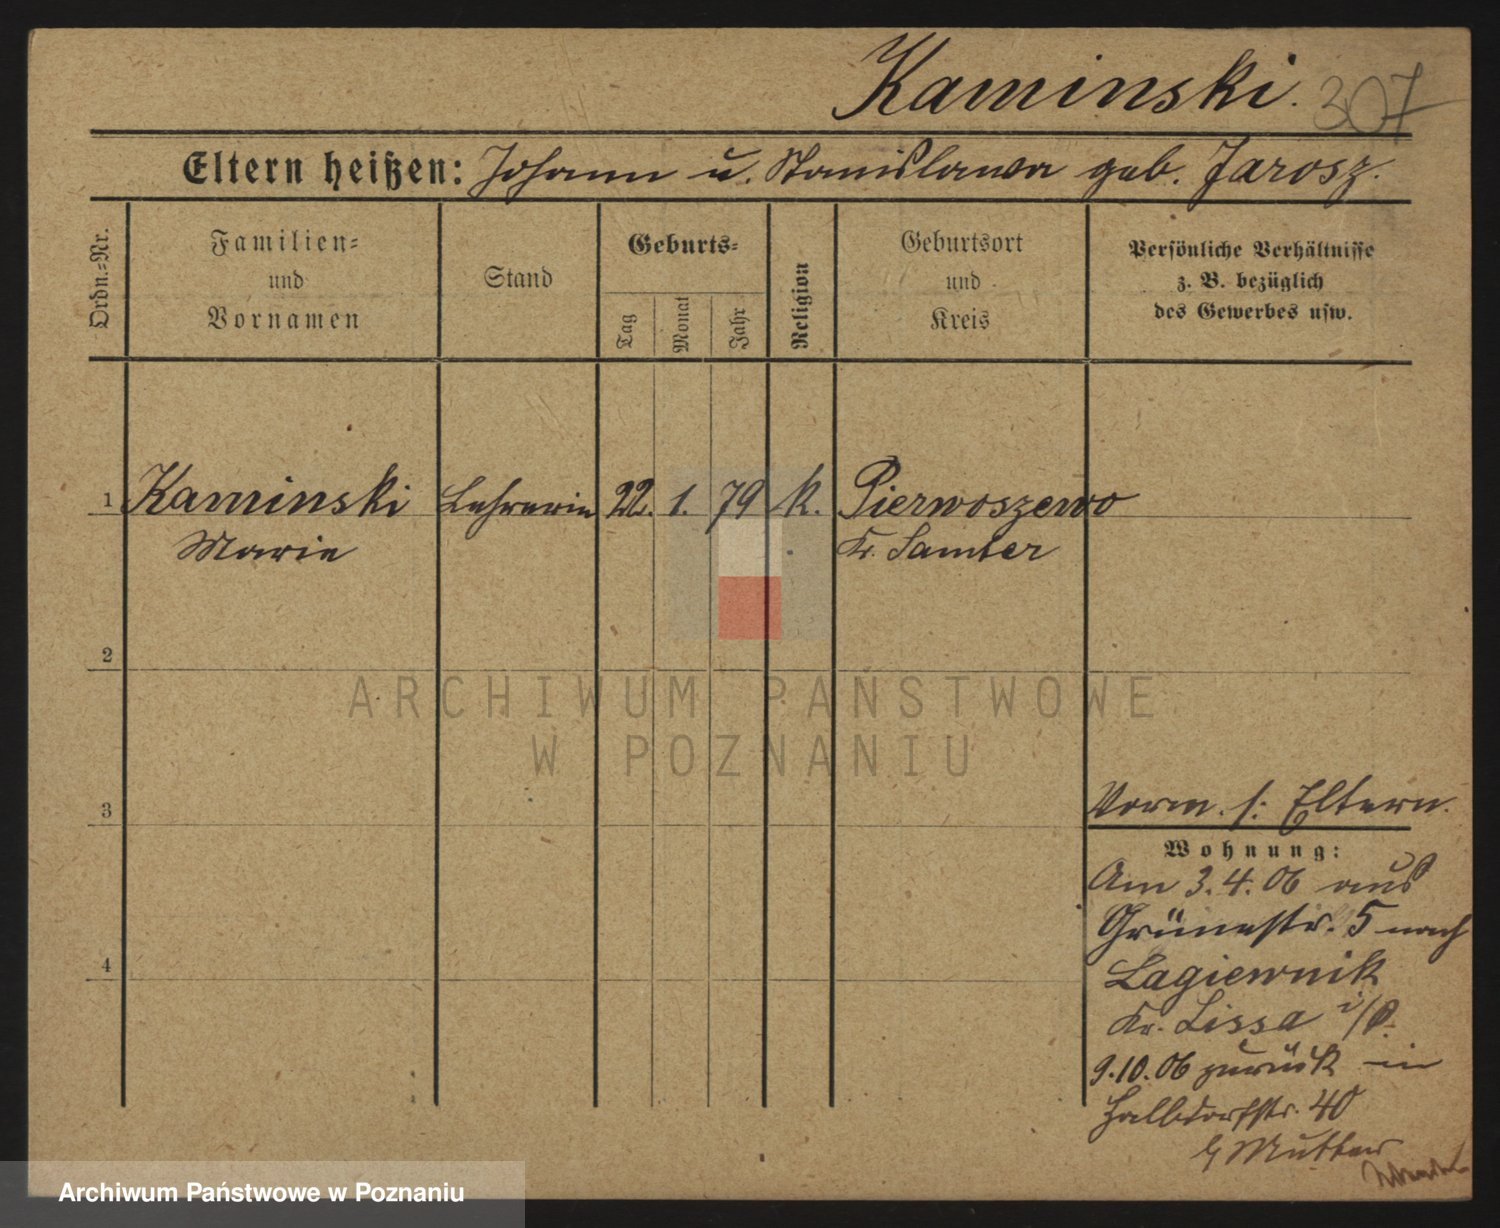 Kaminski. 307
Eltern heißen: Johann u. Stanislawa geb. Jarosz.
Ordn.-Nr.
Familien-
und
Vornamen
Stand
Geburts-
Tag
Monat
Jahr
Religion
Geburtsort
und
Kreis
Persönliche Verhältnisse
z. B. bezüglich
des Gewerbes usw.
1 Kaminski Lehrerin 22. 1. 79 k. Pierwoszewo
Marie Kr. Samter
2
ARCHIWUM PAŃSTWOWE
W POZNANIU
3
Vorm. s: Eltern.
Wohnung:
Am 3.4.06 aus
Grünestr. 5 nach
4
Lagiewnik
Kr. Lissa i/P.
9.10.06 zurück in
Halbdorfstr. 40
b/ Mutter
Archiwum Państwowe w Poznaniu